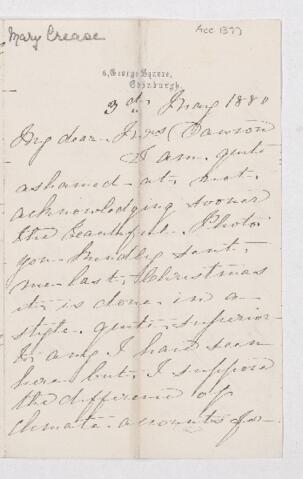 Mary Crease
Acc 1377
6, George Square,
Edinburgh.
3d. May 1880
My dear Mrs Dawson
I am quite
ashamed at not
acknowledging sooner
the beautiful Photo
you kindly sent
me last Christmas
it is done in a
style quite superior
to any I have seen
here but I suppose
the difference of
climate accounts for